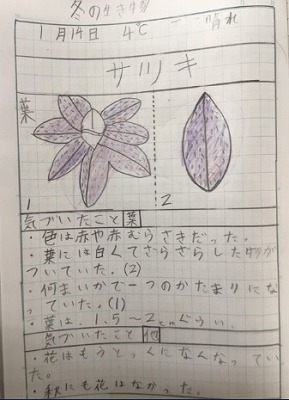 冬の生き物
1月14日 4℃ 晴れ
サツキ
葉
1 2
気づいたこと 葉
・色は赤や赤むらさきだった。
・葉には白くてさらさらした物が
ついていた。(2)
・何まいかで一つのかたまりにな
っていた。(1)
・葉は、1.5〜2cmぐらい。
気づいたこと 他
・花はもうとっくになんなってい
た。
・秋にも花はなかった。